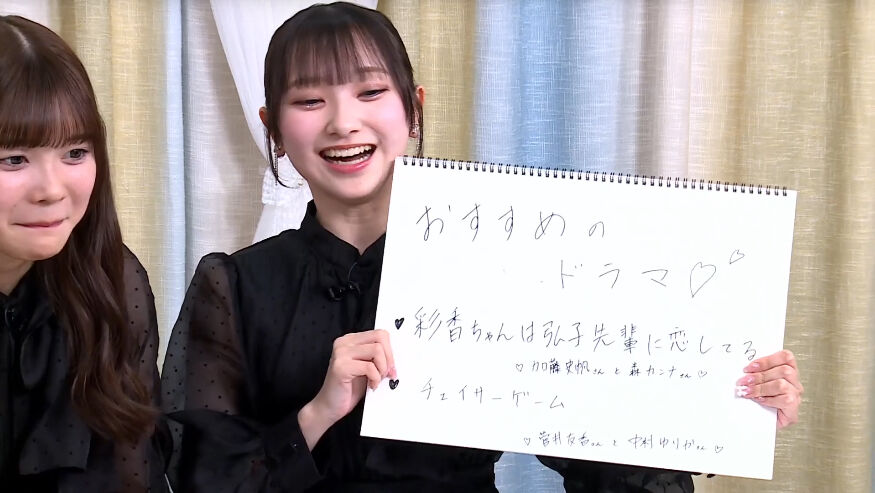 おすすめの
ドラマ♡♡
♥彩香ちゃんは弘子先輩に恋してる
♡加藤史帆さんと森カンナさん♡
♥チェイサーゲーム
♡菅井友香さんと中村ゆりかさん♡